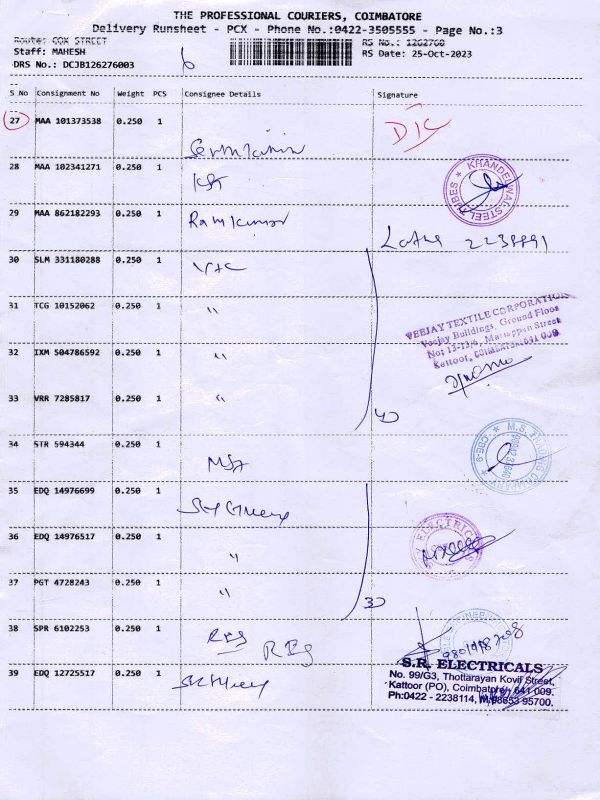 THE PROFESSIONAL COURIERS, COIMBATORE
Delivery Runsheet - PCX - Phone No.:0422-3505555 - Page No.:3
Route: COX STREET RS No.: 1202760
Staff: MAHESH RS Date: 25-Oct-2023
DRS No.: DCJB126276003
S No Consignment No Weight PCS Consignee Details Signature
27 MAA 101373538 0.250 1
28 MAA 102341271 0.250 1
KHANDELWAL STEEL TUBES
29 MAA 862182293 0.250 1
Ramkumar
Latha 2238891
30 SLM 331180288 0.250 1
31 TCG 10152062 0.250 1 "
VEEJAY TEXTILE CORPORATION
Veejay Buildings, Ground Floor
No: 13-13/6, Mariappan Street
Kattoor, COIMBATORE-641 009
32 IXM 504786592 0.250 1 "
33 VRR 7285817 0.250 1 "
34 STR 594344 0.250 1
M.S. TRADING COMPANY
CBE-9
35 EDQ 14976699 0.250 1
36 EDQ 14976517 0.250 1 "
ELECTRICALS
37 PGT 4728243 0.250 1 "
38 SPR 6102253 0.250 1
39 EDQ 12725517 0.250 1
S.R. ELECTRICALS
No. 99/G3, Thottarayan Kovil Street,
Kattoor (PO), Coimbatore - 641 009.
Ph:0422 - 2238114, M:98653 95700.